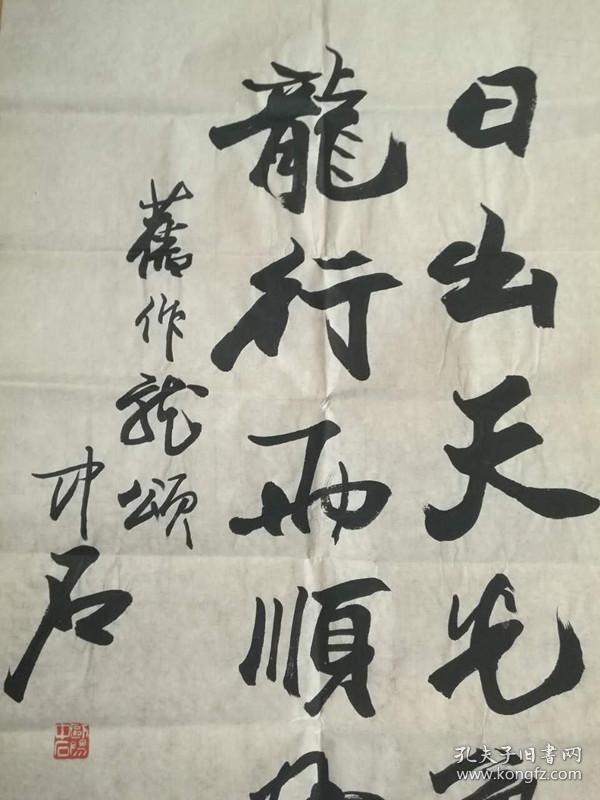 日出天先
龍行雨順
舊作龍頌
中石
歐陽中石
孔夫子旧书网
www.kongfz.com